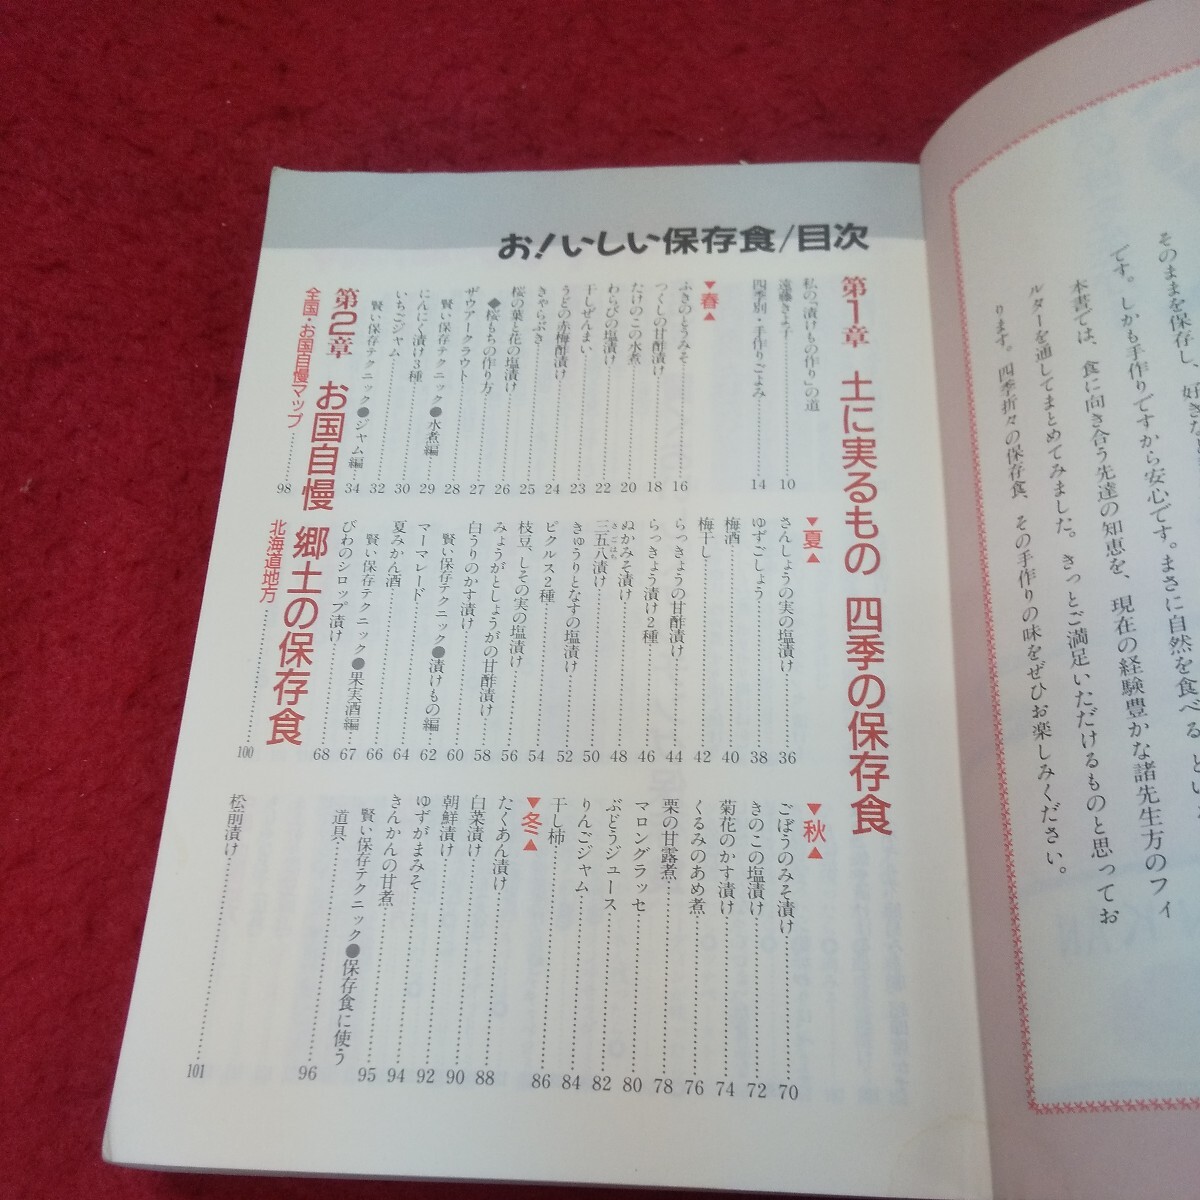 そのままを保存し、好きな
です。しかも手作りですから安心です。まさに自然を食べる、とい
本書では、食に向き合う先達の知恵を、現在の経験豊かな諸先生方のフィ
ルターを通してまとめてみました。きっとご満足いただけるものと思ってお
ります。四季折々の保存食、その手作りの味をぜひお楽しみください。
お!いしい保存食/目次
第1章 土に実るもの 四季の保存食
私の「漬けもの作り」の道
遠藤きよ子 10
四季別・手作りごよみ 14
▼春▲
ふきのとうみそ 16
つくしの甘酢漬け 18
たけのこの水煮 20
わらびの塩漬け 22
干しぜんまい 23
うどの赤梅酢漬け 24
きゃらぶき 25
桜の葉と花の塩漬け 26
◆桜もちの作り方 27
ザウアークラウト 28
賢い保存テクニック●水煮編 29
にんにく漬け3種 30
いちごジャム 32
賢い保存テクニック●ジャム編 34
▼夏▲
さんしょうの実の塩漬け 36
ゆずごしょう 38
梅酒 40
梅干し 42
らっきょうの甘酢漬け 44
らっきょう漬け2種 46
ぬかみそ漬け 48
三五八漬け 50
さごはち
きゅうりとなすの塩漬け 52
ピクルス2種 54
枝豆、しその実の塩漬け 56
みょうがとしょうがの甘酢漬け 58
白うりのかす漬け 60
賢い保存テクニック●漬けもの編 62
マーマレード 64
夏みかん酒 66
賢い保存テクニック●果実酒編 67
びわのシロップ漬け 68
▼秋▲
ごぼうのみそ漬け 70
きのこの塩漬け 72
菊花のかす漬け 74
くるみのあめ煮 76
栗の甘露煮 78
マロングラッセ 80
ぶどうジュース 82
りんごジャム 84
干し柿 86
▼冬▲
たくあん漬け 88
白菜漬け 90
朝鮮漬け 92
ゆずがまみそ 94
きんかんの甘煮 95
賢い保存テクニック●保存食に使う
道具 96
第2章 お国自慢 郷土の保存食
全国・お国自慢マップ 98
北海道地方 100
松前漬け 101